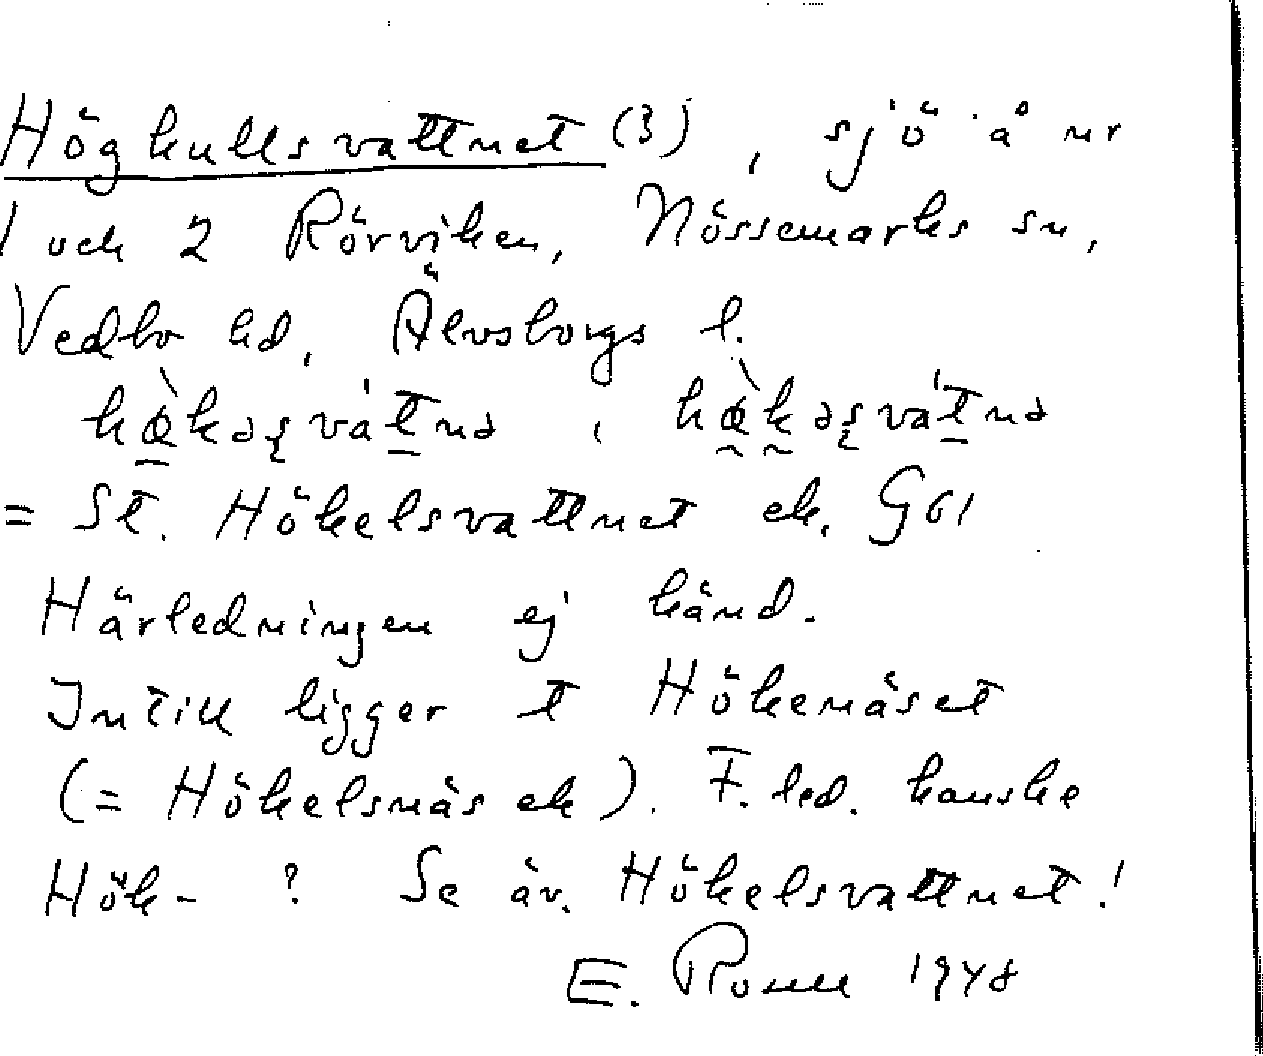 Högkullsvattnet (3), sjö å nr
1 och 2 Rörviken, Nössemarks sn,
Vedbo hd, Älvsborgs l.
= St. Hökelsvattnet ek. G61
Härledningen ej känd.
Intill ligger t Hökenäset
(= Hökelsnäs ek). F. led. kanske
Hök- ? Se äv. Hökelsvattnet!
E. Rosell 1948